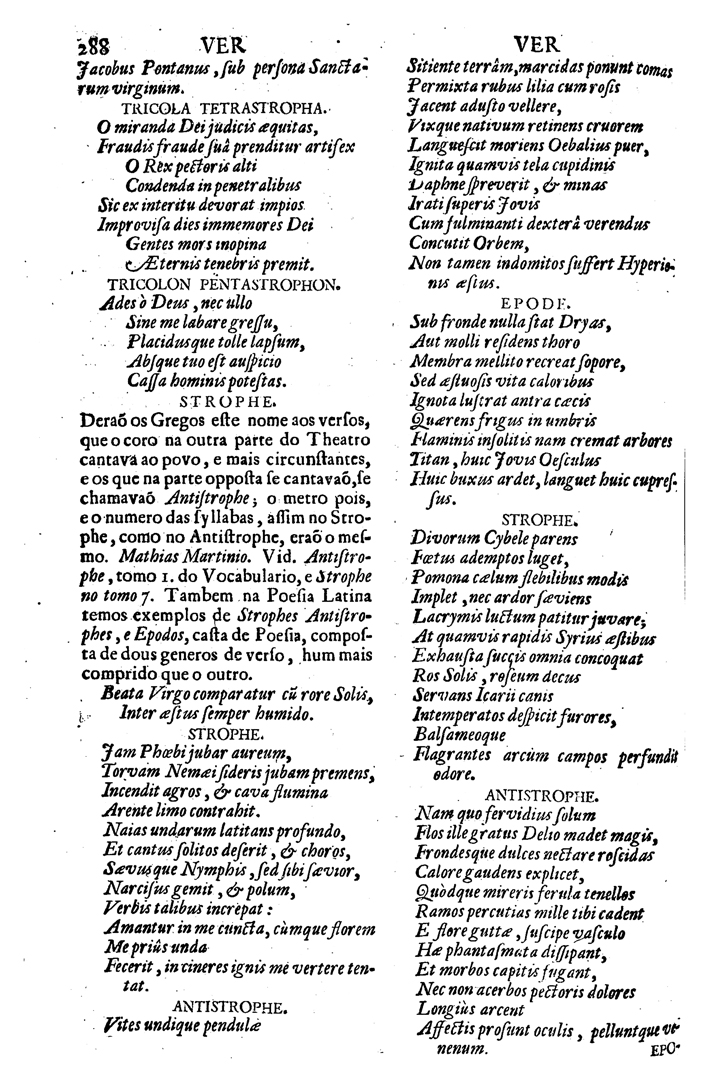 288 VER
Jacobus Pontanus, ſub perſona Sancta-
rum virginum.
TRICOLA TETRASTROPHA.
O miranda Dei judicis æquitas,
Fraudis fraude ſuâ prenditur artifex
O Rex pectoris alti
Condenda in penetralibus
Sic ex interitu devorat impios
Improviſa dies immemores Dei
Gentes mors inopina
Æternis tenebris premit.
TRICOLON PENTASTROPHON.
Ades ò Deus, nec ullo
Sine me labare greſſu,
Placidusque tolle lapſum,
Abſque tuo eſt auſpicio
Caſſa hominis poteſtas.
STROPHE.
Deraõ os Gregos eſte nome aos verſos,
que o coro na outra parte do Theatro
cantava ao povo, e mais circunſtantes,
e os que na parte oppoſta ſe cantavaõ, ſe
chamavaõ Antiſtrophe; o metro pois,
e o numero das ſyllabas, aſſim no Stro-
phe, como no Antiſtrophe, eraõ o meſ-
mo. Mathias Martinio. Vid. Antiſtro-
phe, tomo 1. do Vocabulario, e Strophe
no tomo 7. Tambem na Poeſia Latina
temos exemplos de Strophes Antiſtro-
phes, e Epodos, caſta de Poeſia, compoſ-
ta de dous generos de verſo, hum mais
comprido que o outro.
Beata Virgo comparatur cũ rore Solis,
Inter æſtus ſemper humido.
STROPHE.
Jam Phœbi jubar aureum,
Torvam Nemæi ſideris jubam premens,
Incendit agros, & cava flumina
Arente limo contrahit.
Naias undarum latitans profundo,
Et cantus ſolitos deſerit, & choros,
Sævusque Nymphis, ſed ſibi ſævior,
Narciſus gemit, & polum,
Verbis talibus increpat:
Amantur in me cuncta, cùmque florem
Me priùs unda
Fecerit, in cineres ignis me vertere ten-
tat.
ANTISTROPHE.
Vites undique pendulæ
VER
Sitiente terrâm, marcidas ponunt comas
Permixta rubus lilia cum roſis
Jacent aduſto vellere,
Vixque nativum retinens cruorem
Langueſcit moriens Oebalius puer,
Ignita quamvis tela cupidinis
Daphne ſpreverit, & minas
Irati ſuperis Jovis
Cum fulminanti dexterâ verendus
Concutit Orbem,
Non tamen indomitos ſuffert Hyperio-
nis æſtus.
EPODE.
Sub fronde nulla ſtat Dryas,
Aut molli reſidens thoro
Membra mellito recreat ſopore,
Sed æſtuoſis vita caloribus
Ignota luſtrat antra cæcis
Quærens frigus in umbris
Flaminis inſolitis nam cremat arbores
Titan, huic Jovis Oeſculus
Huic buxus ardet, languet huic cupreſ-
ſus.
STROPHE.
Divorum Cybele parens
Fœtus ademptos luget,
Pomona cælum flebilibus modis
Implet, nec ardor ſæviens
Lacrymis luctum patitur juvare;
At quamvis rapidis Syrius æſtibus
Exhauſta ſuccis omnia concoquat
Ros Solis, roſeum decus
Servans Icarii canis
Intemperatos deſpicit furores,
Balſameoque
Flagrantes arcùm campos perfundit
odore.
ANTISTROPHE.
Nam quo fervidius ſolum
Flos ille gratus Delio madet magis,
Frondesque dulces nectare roſcidas
Calore gaudens explicet,
Quòdque mireris ferula tenellos
Ramos percutias mille tibi cadent
E flore guttæ, ſuſcipe vaſculo
Hæ phantaſmata diſſipant,
Et morbos capitis fugant,
Nec non acerbos pectoris dolores
Longiùs arcent
Affectis proſunt oculis, pelluntque ve-
nenum. EPO-